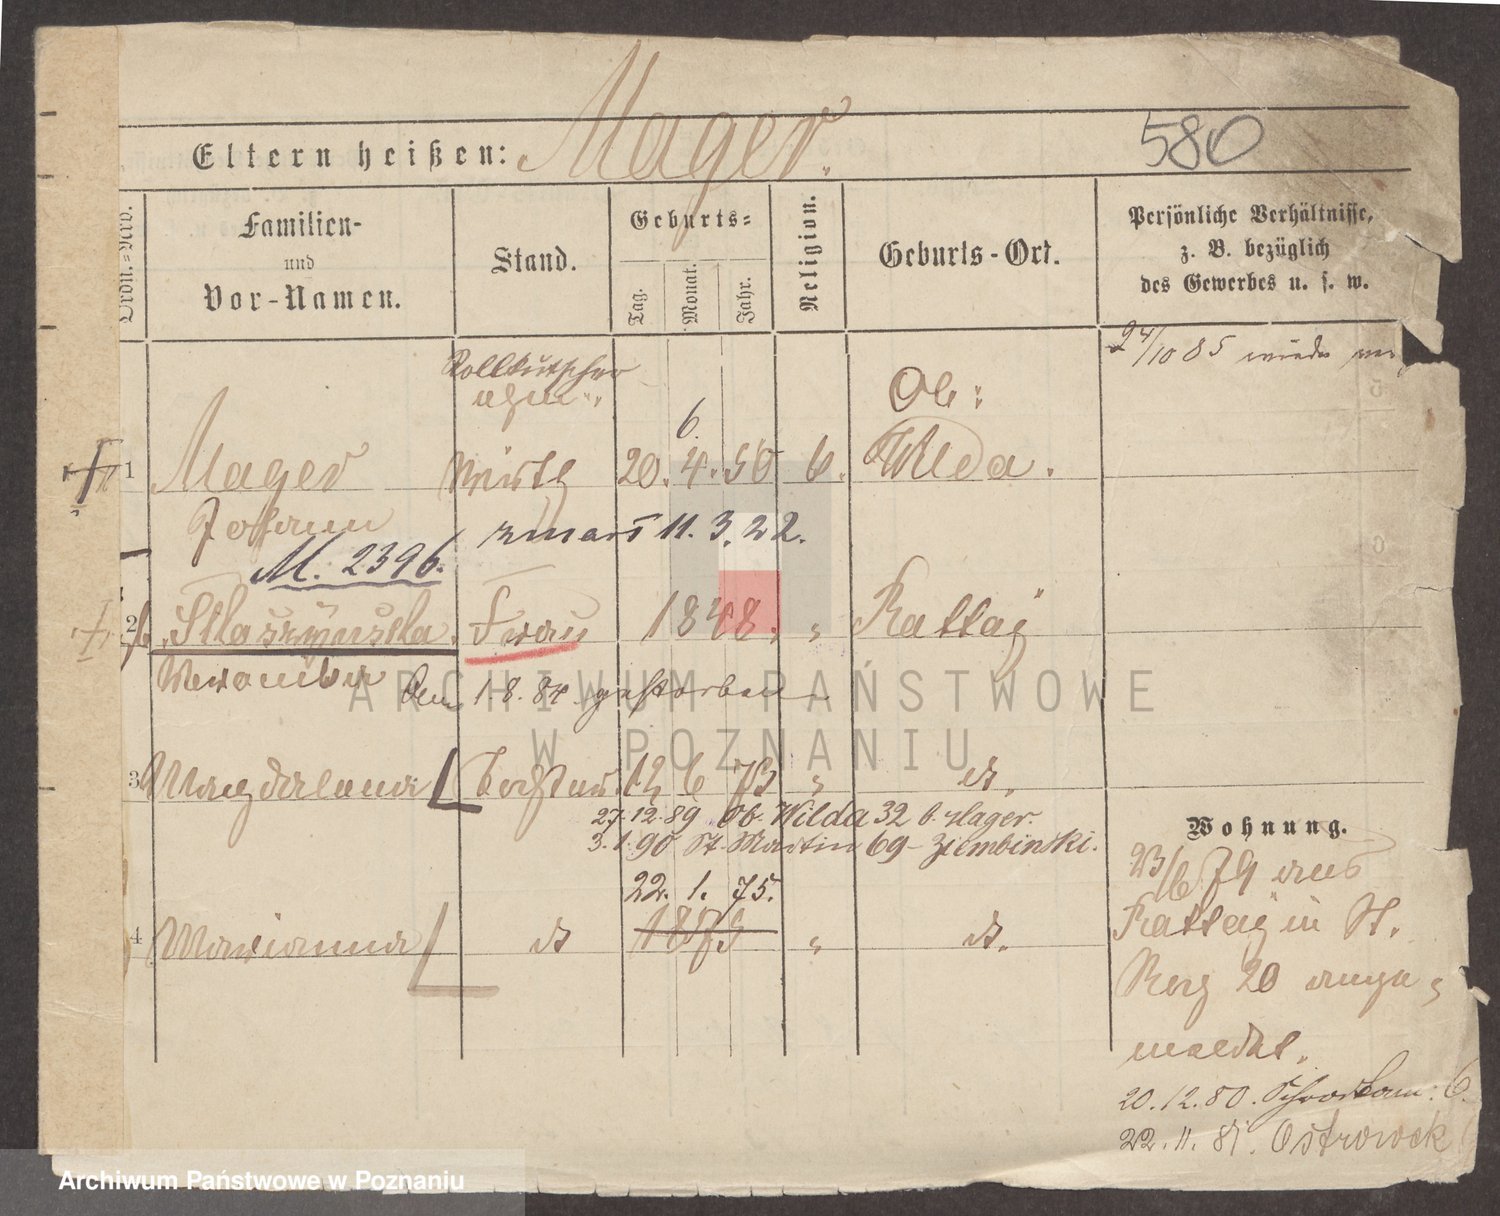 Eltern heißen: Mager.
580
Ordn.=Nro.
Familien-
und
Vor-Namen.
Stand.
Geburts=
Tag.
Monat.
Jahr.
Religion.
Geburts-Ort.
Persönliche Verhältnisse,
z. B. bezüglich
des Gewerbes u. s. w.
24/10 85 wieder
Rollkutscher
Ob:
6.
1 Mager Wirth 20. 4. 50 Wilda.
Johann
zmarł 11. 3. 22.
M. 2396.
2 Frau 1848. " Rattaj
den 1.8.84 gestorben
3 Magdalena Tochter 12 6 73 " dt.
27.12.89 Ob. Wilda 32 b. Mager.
3.1.90 St. Martin 69 Ziembinski.
22. 1. 75.
4 Marianna dt 1875 " dt.
Wohnung.
23/6 79 aus
Rattaj in St.
20 ange=
meldet.
20.12.80.
22.11.81. Ostrowek
ARCHIWUM PAŃSTWOWE
W POZNANIU
Archiwum Państwowe w Poznaniu